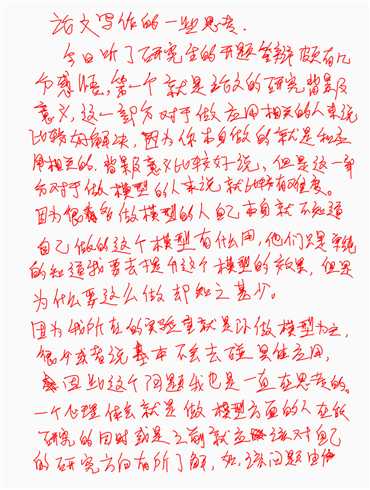 论文写作的一些思考.
今日听了研究生的开题答辩颇有几
分感悟,第一个就是论文的研究背景及
意义,这一部分对于做应用相关的人来说
比较好解决,因为你本身做的就是和应
用相关的.背景及意义比较好说,但是这一部
分对于做模型的人来说就比较有难度。
因为很多做模型的人自己本身就不知道
自己做的这个模型有什么用,他们只是单纯
的知道我要去提升这个模型的效果,但是
为什么要这么做却知之甚少。
因为我所在的实验室就是以做模型为主,
很少或者说基本不会去碰具体应用,
因此这个问题我也是一直在思考的。
一个心理体会就是做模型方面的人在做
研究的同时或是之前就应该对自己
的研究方向有所了解,如:该问题由何